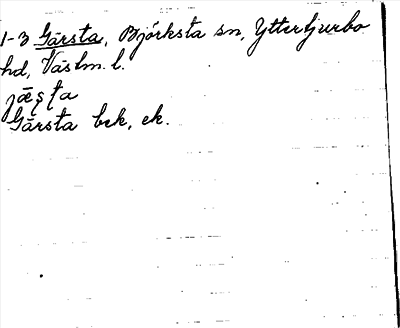 1-3 Gärsta, Björksta sn, Yttertjurbo
hd, Västm. l.
jæ̀ʂʈa
Gärsta bck, ek.